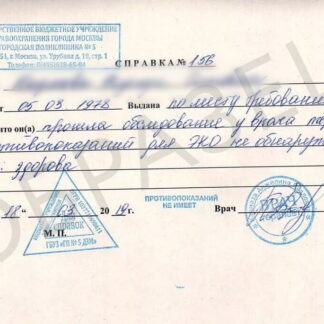 РСТВЕННОЕ БЮДЖЕТНОЕ УЧРЕЖДЕНИЕ
ВООХРАНЕНИЯ ГОРОДА МОСКВЫ
ГОРОДСКАЯ ПОЛИКЛИНИКА № 5
г. Москва, ул. Трубная д. 19, стр. 1
Телефон:
СПРАВКА № 156
г 05 03 1978 Выдана по месту требования
что он(а) прошла обследование у врача
тивопоказаний для ЭКО не обнаруж
: здорова
18 03 20 19 г. Врач
М. П.
ПРОТИВОПОКАЗАНИЙ
НЕ ИМЕЕТ
ГБУЗ «ГП № 5 ДЗМ»
ВРАЧ
ОБРАЗЕЦ